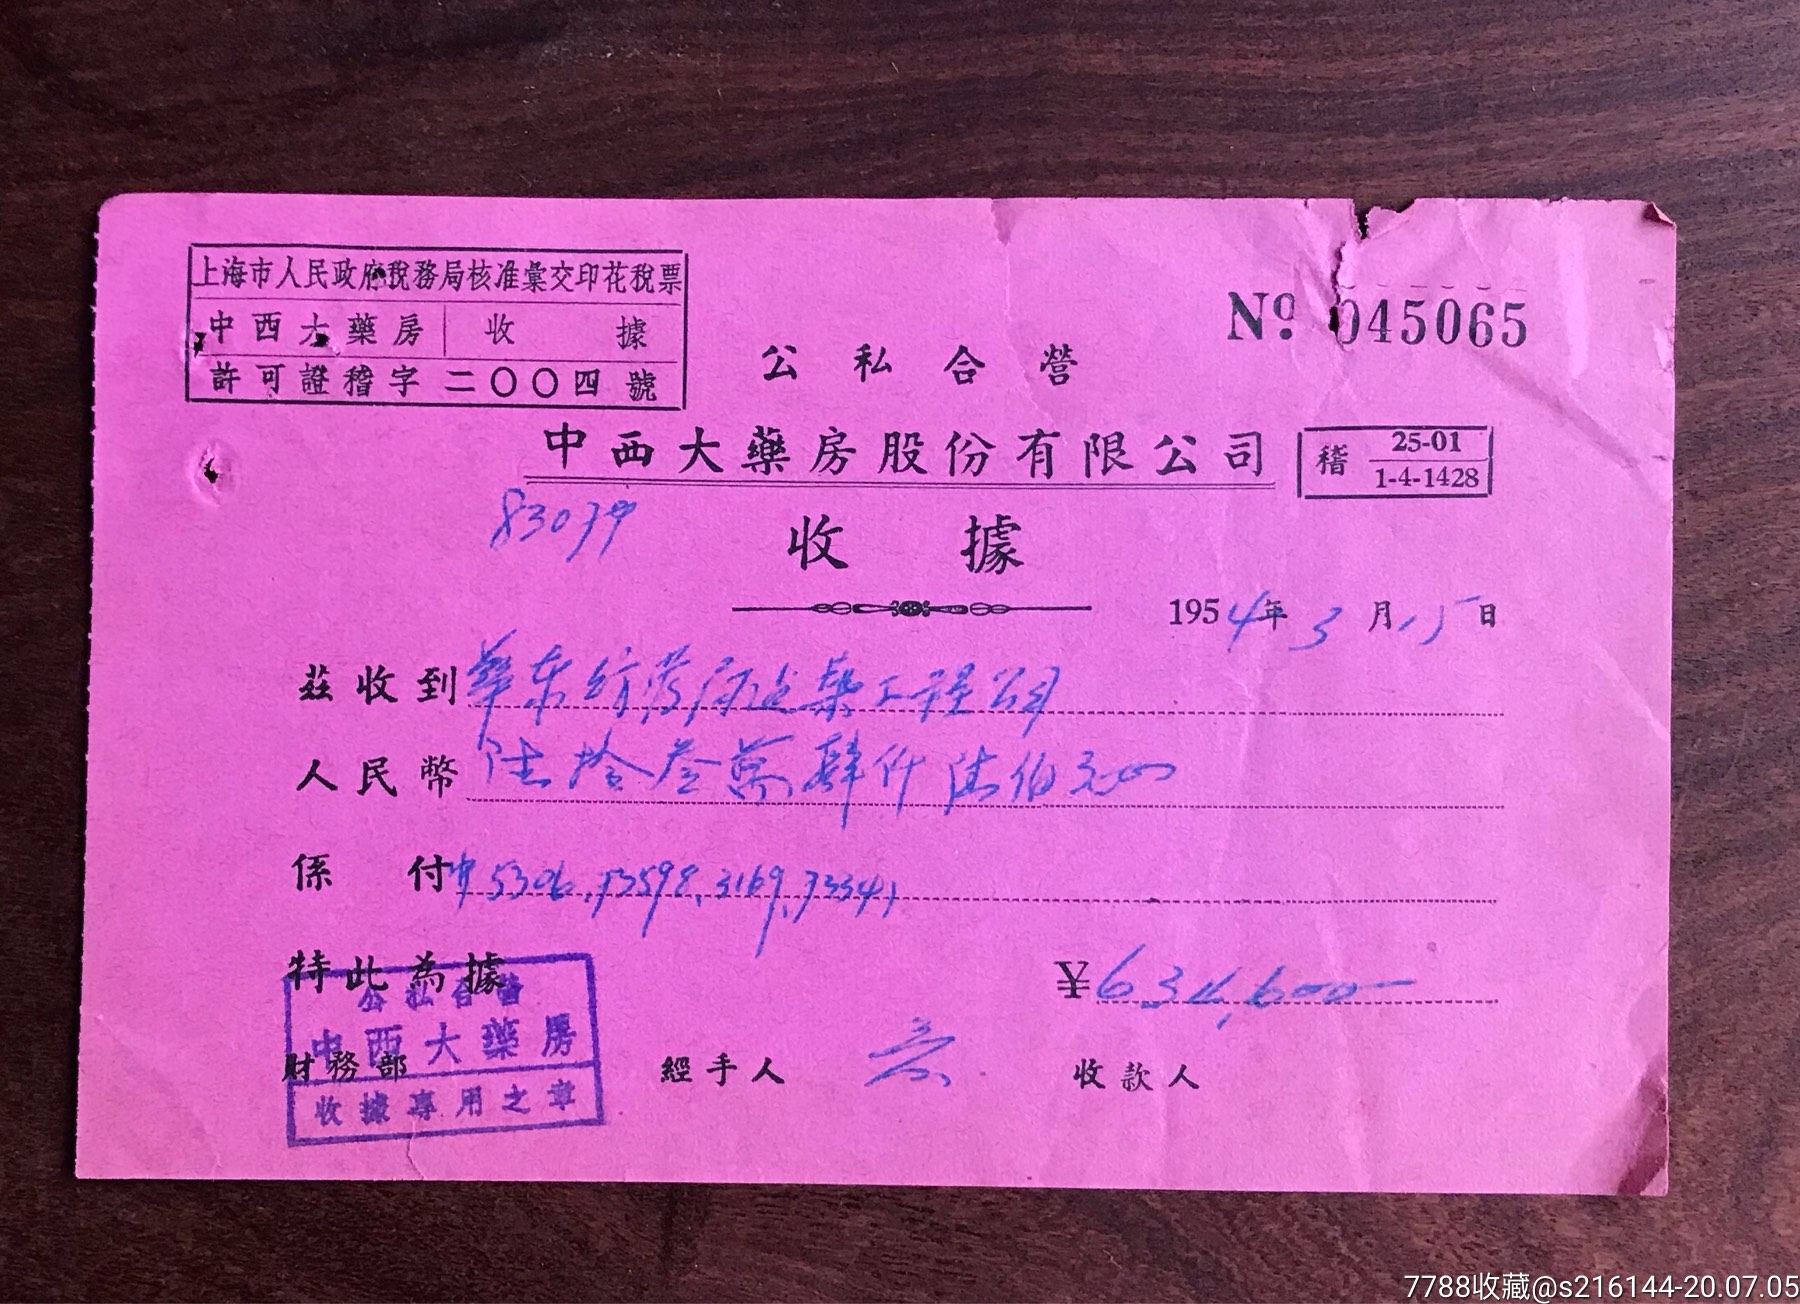 上海市人民政府稅務局核准彙交印花稅票
中西大藥房 收據
許可證稽字二〇〇四號
№ 045065
公私合營
中西大藥房股份有限公司
稽 25-01
1-4-1428
收據
1954年3月15日
茲收到華东纺管局建築工程公司
人民幣陆拾叁萬肆仟陆佰元
係付 5306, 13598, 3169, 73341
特此為據
¥634,600
公私合營
中西大藥房
收據專用之章
財務部 經手人 收款人
7788收藏@s216144-20.07.05